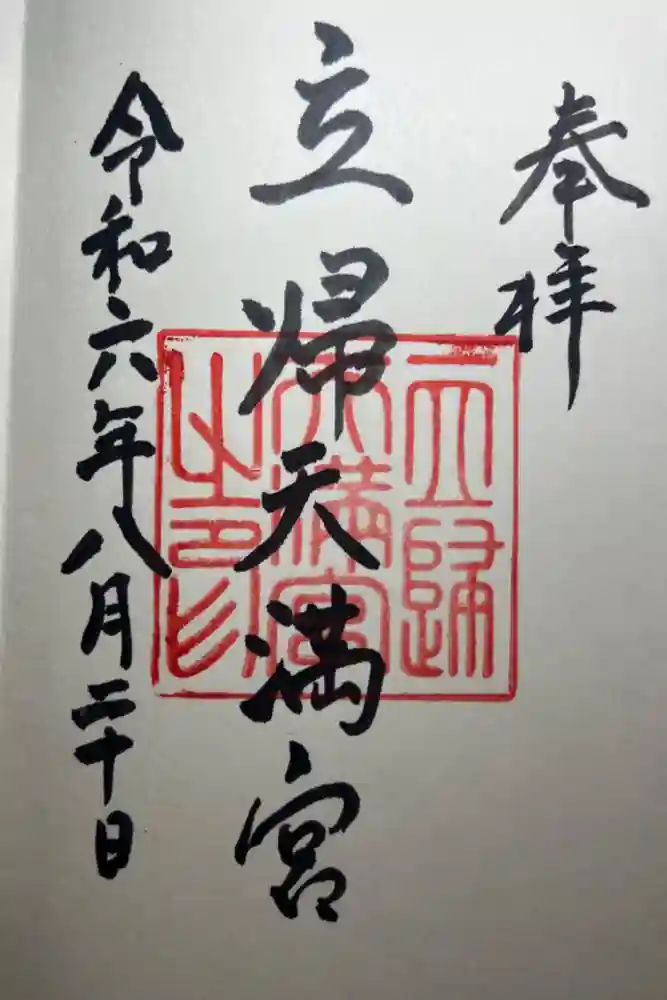 奉拝
立帰天満宮
令和六年八月二十日
立歸
天満宮
之印